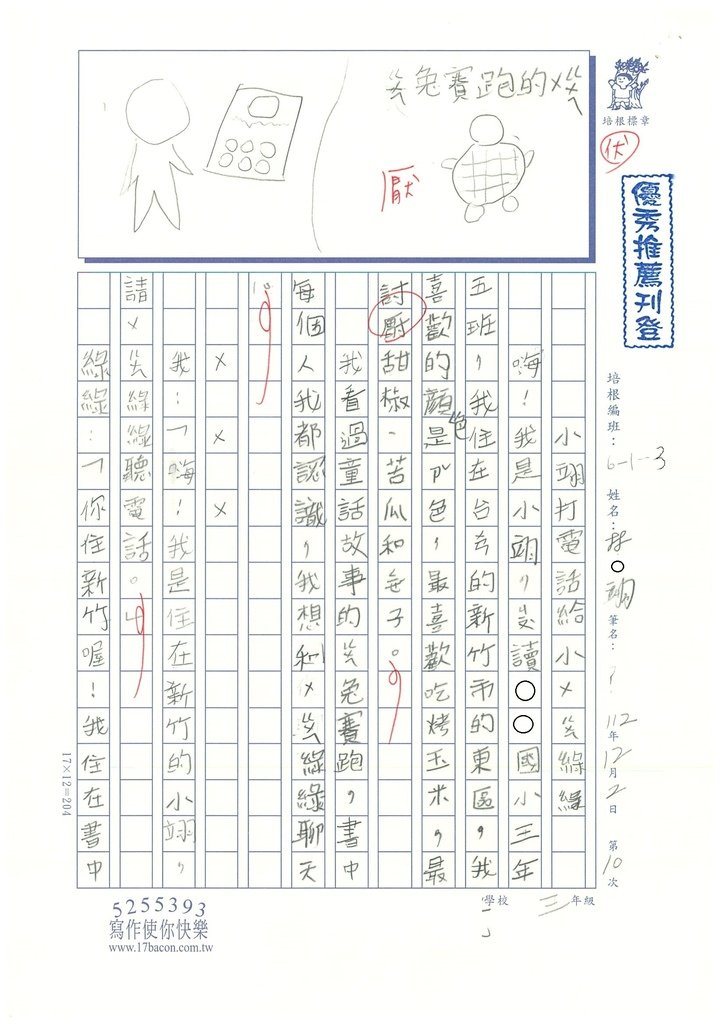 ㄍㄨㄟ兔賽跑的ㄨㄍㄨㄟ
厭
培根標章
伏
優秀推薦刊登
培根編班：6-1-3 姓名：林○翊 筆名：？ 112年12月2日 第10次
小翊打電話給小ㄨㄍㄨㄟ綠綠
嗨！我是小翊，讀○○國小三年
五班，我住在台的新竹市的東區，我
喜歡的顏色是色，最喜歡吃烤玉米，最
討厭甜椒、苦瓜和子。
我看過童話故事的ㄍㄨㄟ兔賽跑，書中
每個人我都認識，我想和ㄨㄍㄨㄟ綠綠聊天
。
×××
我：「嗨！我是住在新竹的小翊，
請ㄨㄍㄨㄟ綠綠聽電話。」
綠綠：「你住新竹喔！我住在書中
17×12=204
學校 三年級
5255393
寫作使你快樂
www.17bacon.com.tw